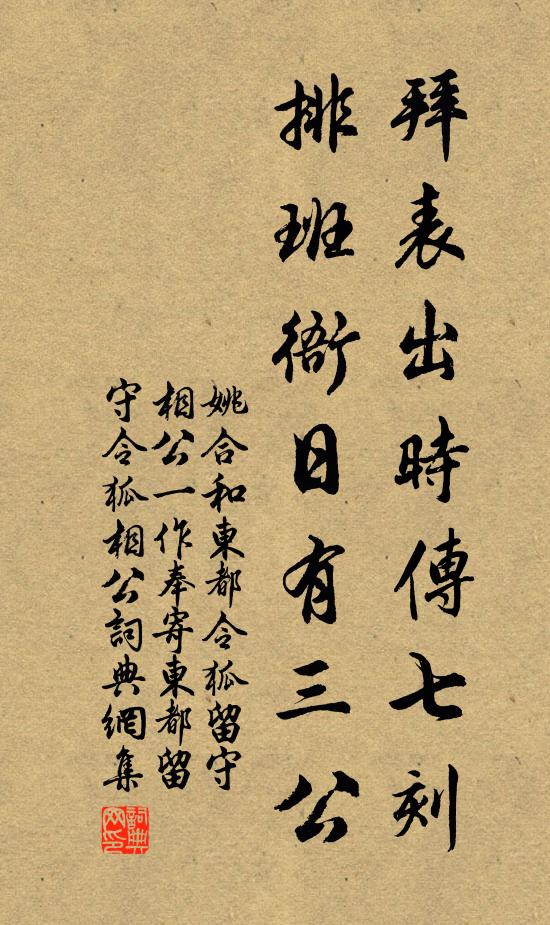 拜表出時傳七刻
排班衙日有三公
姚合和東都令狐留守
相公一作奉寄東都留
守令狐相公詞典網集
詞典網印